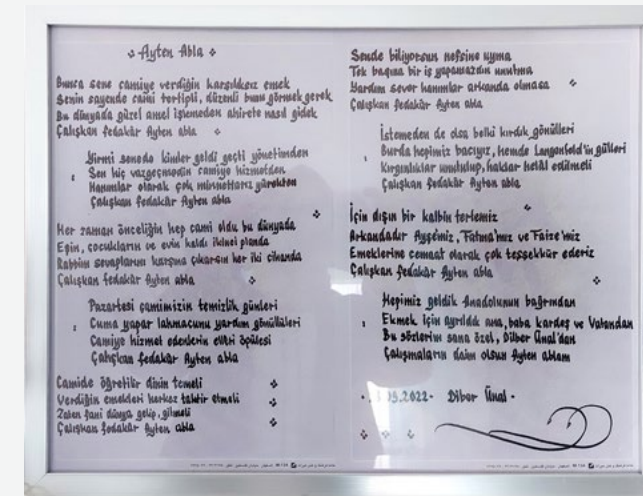 Ayten Abla
Bunca sene camiye verdiğin karşılıksız emek
Senin sayende cami tertipli, düzenli bunu görmek gerek
Bu dünyada güzel amel işlemeden ahirete nasıl gidek
Çalışkan fedakâr Ayten abla
Yirmi senede kimler geldi geçti yönetimden
Sen hiç vazgeçmedin camiye hizmetden
Hanımlar olarak çok minnettarız yürekten
Çalışkan fedakâr Ayten abla
Her zaman önceliğin hep cami oldu bu dünyada
Eşin, çocukların ve evin kaldı ikinci planda
Rabbim sevaplarını karşına çıkarsın her iki cihanda
Çalışkan fedakâr Ayten abla
Pazartesi camimizin temizlik günleri
Cuma yapar lahmacunu yardım gönüllüleri
Camiye hizmet edenlerin elleri öpülesi
Çalışkan fedakâr Ayten abla
Camide öğretilir dinin temeli
Verdiğin emekleri herkez taktir etmeli
Zaten fani dünya gelip, gitmeli
Çalışkan fedakâr Ayten abla
Sende biliyorsun nefsine uyma
Tek başına bir iş yapamazdın unutma
Yardım sever hanımlar arkanda olmasa
Çalışkan fedakâr Ayten abla
İstemeden de olsa belki kırdık gönülleri
Burda hepimiz bacıyız, hemde Langenfeld'in gülleri
Kırgınlıklar unutulup, haklar helâl edilmeli
Çalışkan fedakâr Ayten abla
İçin dışın bir kalbin tertemiz
Arkandadır Ayşe'miz, Fatma'mız ve Faize'miz
Emeklerine cemaat olarak çok teşekkür ederiz
Çalışkan fedakâr Ayten abla
Hepimiz geldik Anadolunun bağrından
Ekmek için ayrıldık ana, baba kardeş ve Vatandan
Bu sözlerim sana özel, Dilber Ünal'dan
Çalışmaların daim olsun Ayten ablam
.09.2022 - Dilber Ünal -